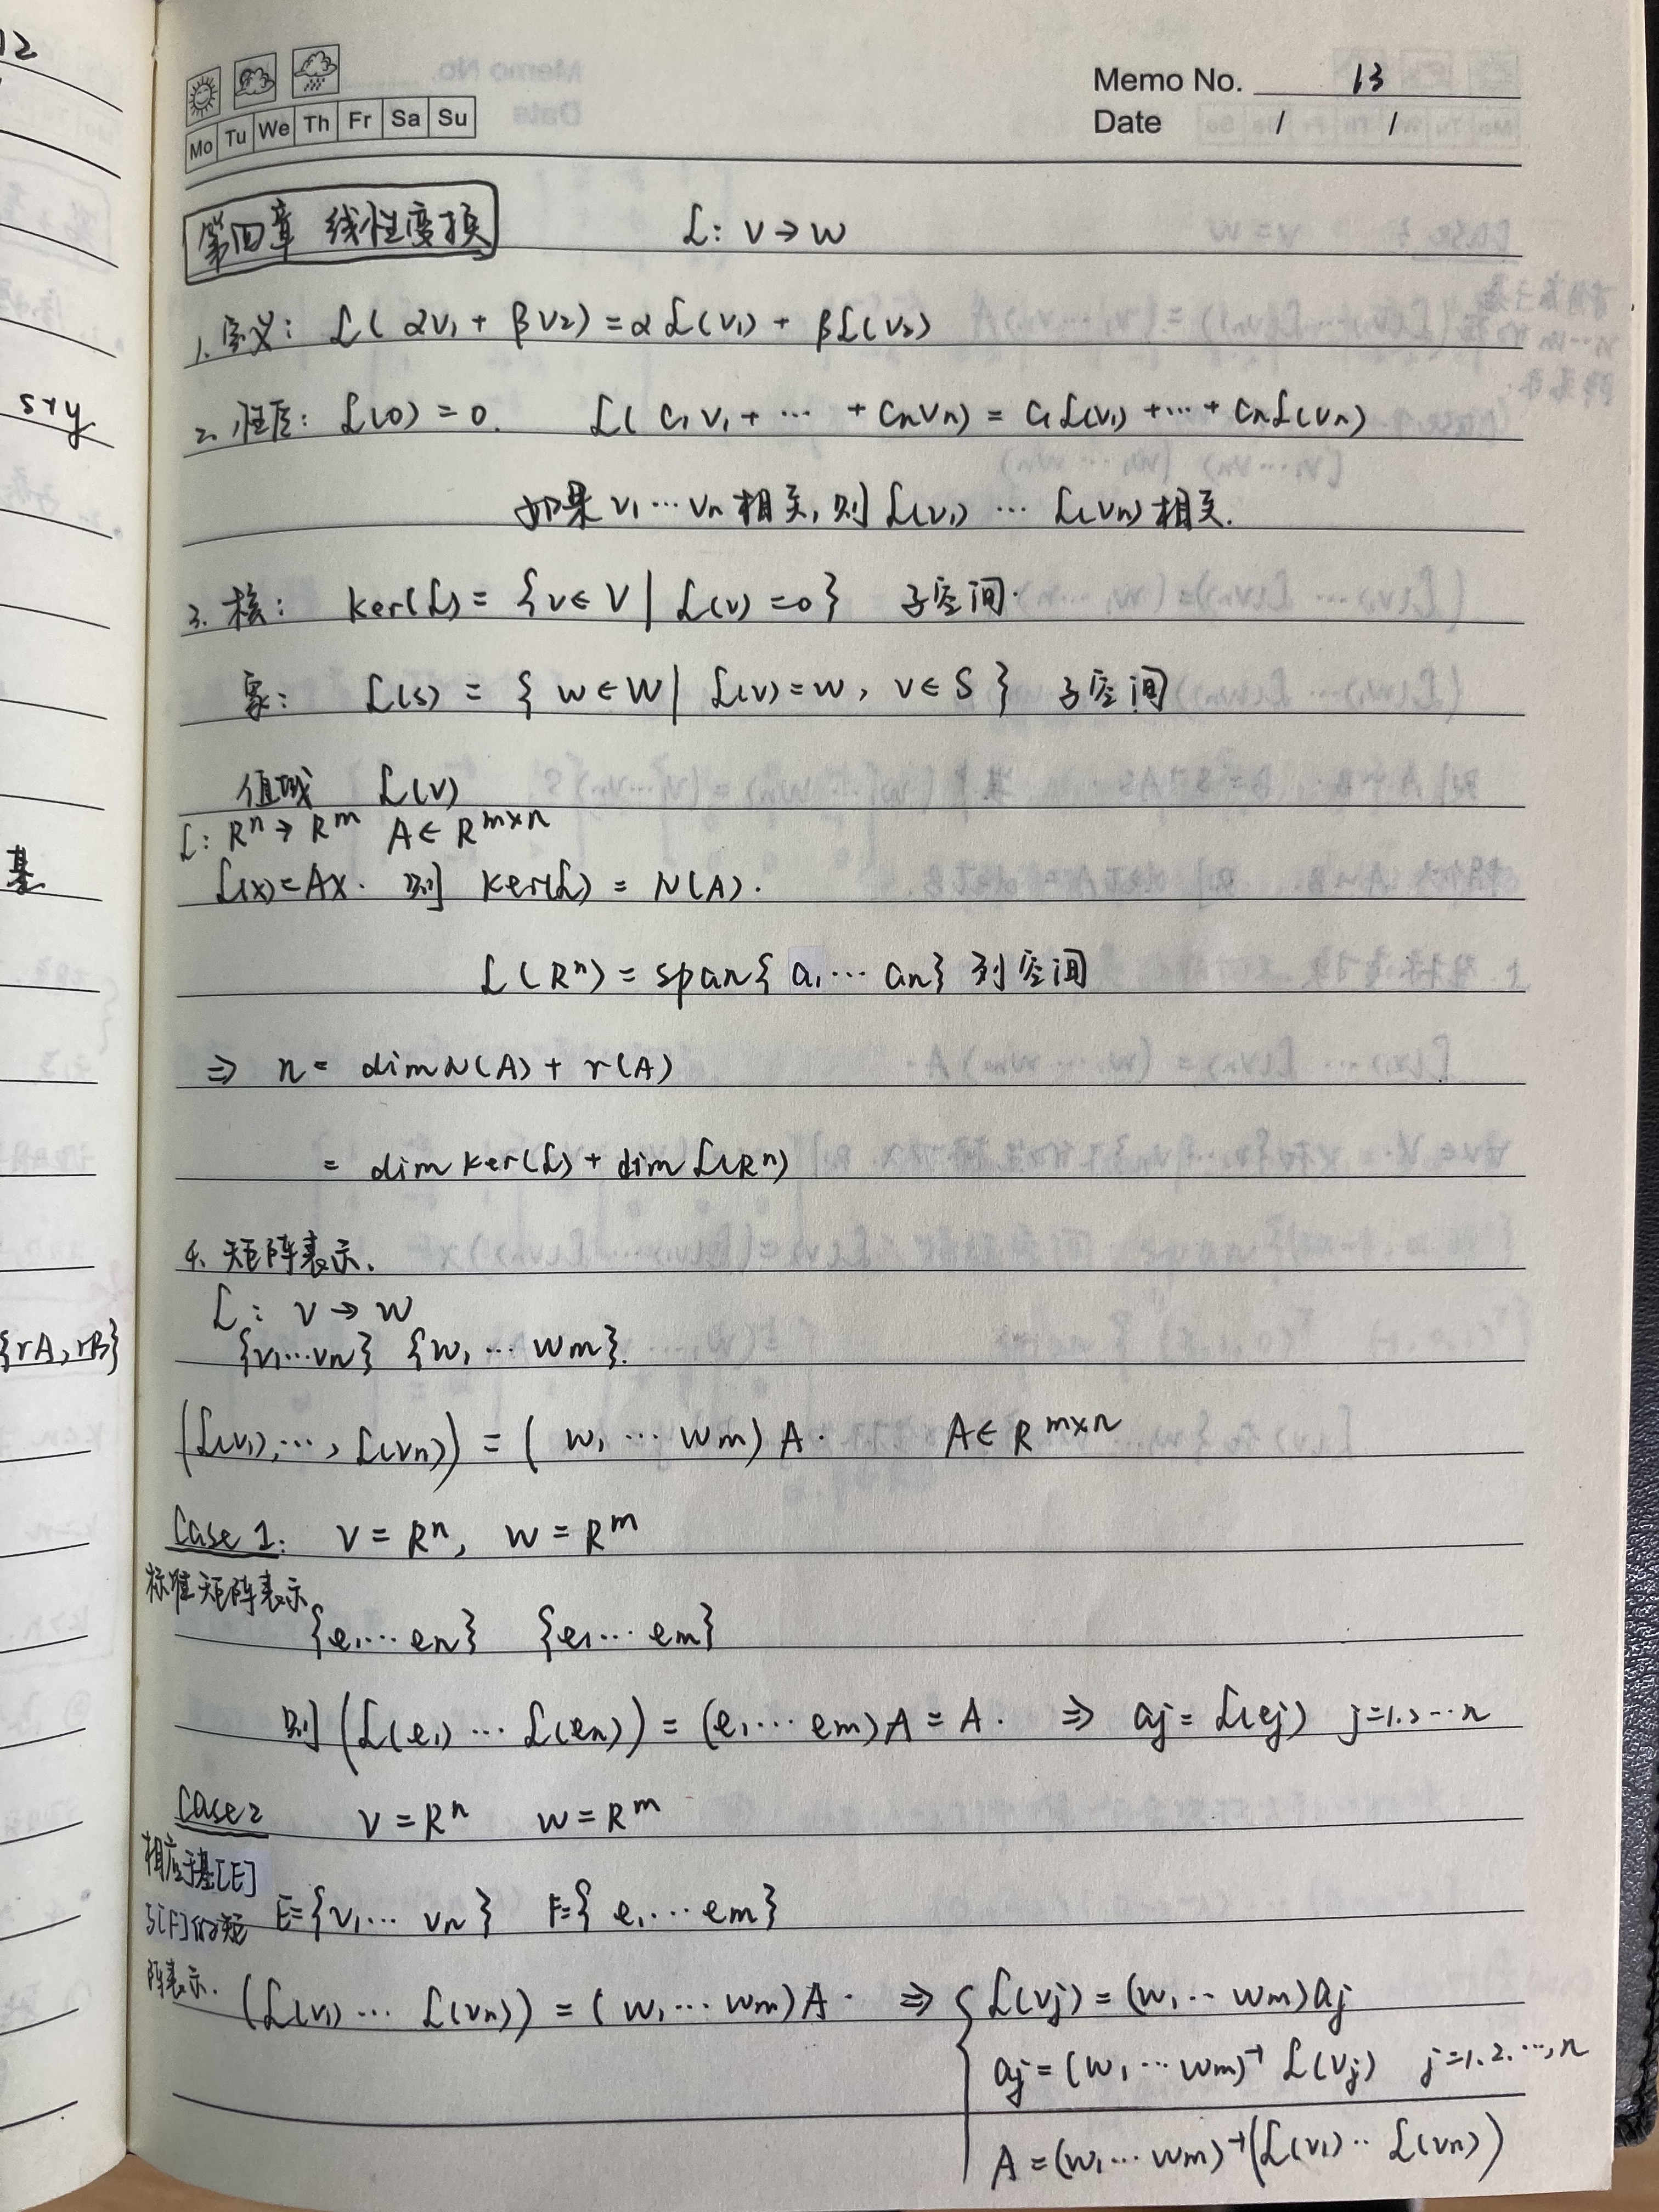 12
s+y
基
{rA, rB}
Mo Tu We Th Fr Sa Su
Memo No. 13
Date / /
第四章 线性变换 L: V→W
1. 定义: L(αv₁ + βv₂) = αL(v₁) + βL(v₂)
2. 性质: L(0) = 0. L(c₁v₁ + ⋯ + cₙvₙ) = c₁L(v₁) + ⋯ + cₙL(vₙ)
如果 v₁ ⋯ vₙ 相关, 则 L(v₁) ⋯ L(vₙ) 相关.
3. 核: ker(L) = {v∈V | L(v) = 0} 子空间.
象: L(S) = {w∈W | L(v) = w, v∈S} 子空间
值域 L(V)
L: Rⁿ→Rᵐ A∈Rᵐˣⁿ
L(x)=Ax. 则 ker(L) = N(A).
L(Rⁿ) = span{a₁ ⋯ aₙ} 列空间
⇒ n = dim N(A) + r(A)
= dim ker(L) + dim L(Rⁿ)
4. 矩阵表示.
L: V→W
{v₁⋯vₙ} {w₁ ⋯ wₘ}.
(L(v₁), ⋯, L(vₙ)) = (w₁ ⋯ wₘ) A. A∈Rᵐˣⁿ
Case 1: V = Rⁿ, W = Rᵐ
标准矩阵表示
{e₁⋯eₙ} {e₁⋯eₘ}
则 (L(e₁) ⋯ L(eₙ)) = (e₁⋯eₘ)A = A. ⇒ aⱼ = L(eⱼ) j=1.2⋯n
Case 2 V = Rⁿ W = Rᵐ
相应于基[E]
与[F]的矩
阵表示.
E={v₁⋯vₙ} F={e₁⋯eₘ}
(L(v₁) ⋯ L(vₙ)) = (w₁⋯wₘ)A. ⇒ { L(vⱼ) = (w₁⋯wₘ)aⱼ
aⱼ = (w₁⋯wₘ)⁻¹ L(vⱼ) j=1.2.⋯,n
A = (w₁⋯wₘ)⁻¹(L(v₁)⋯L(vₙ))